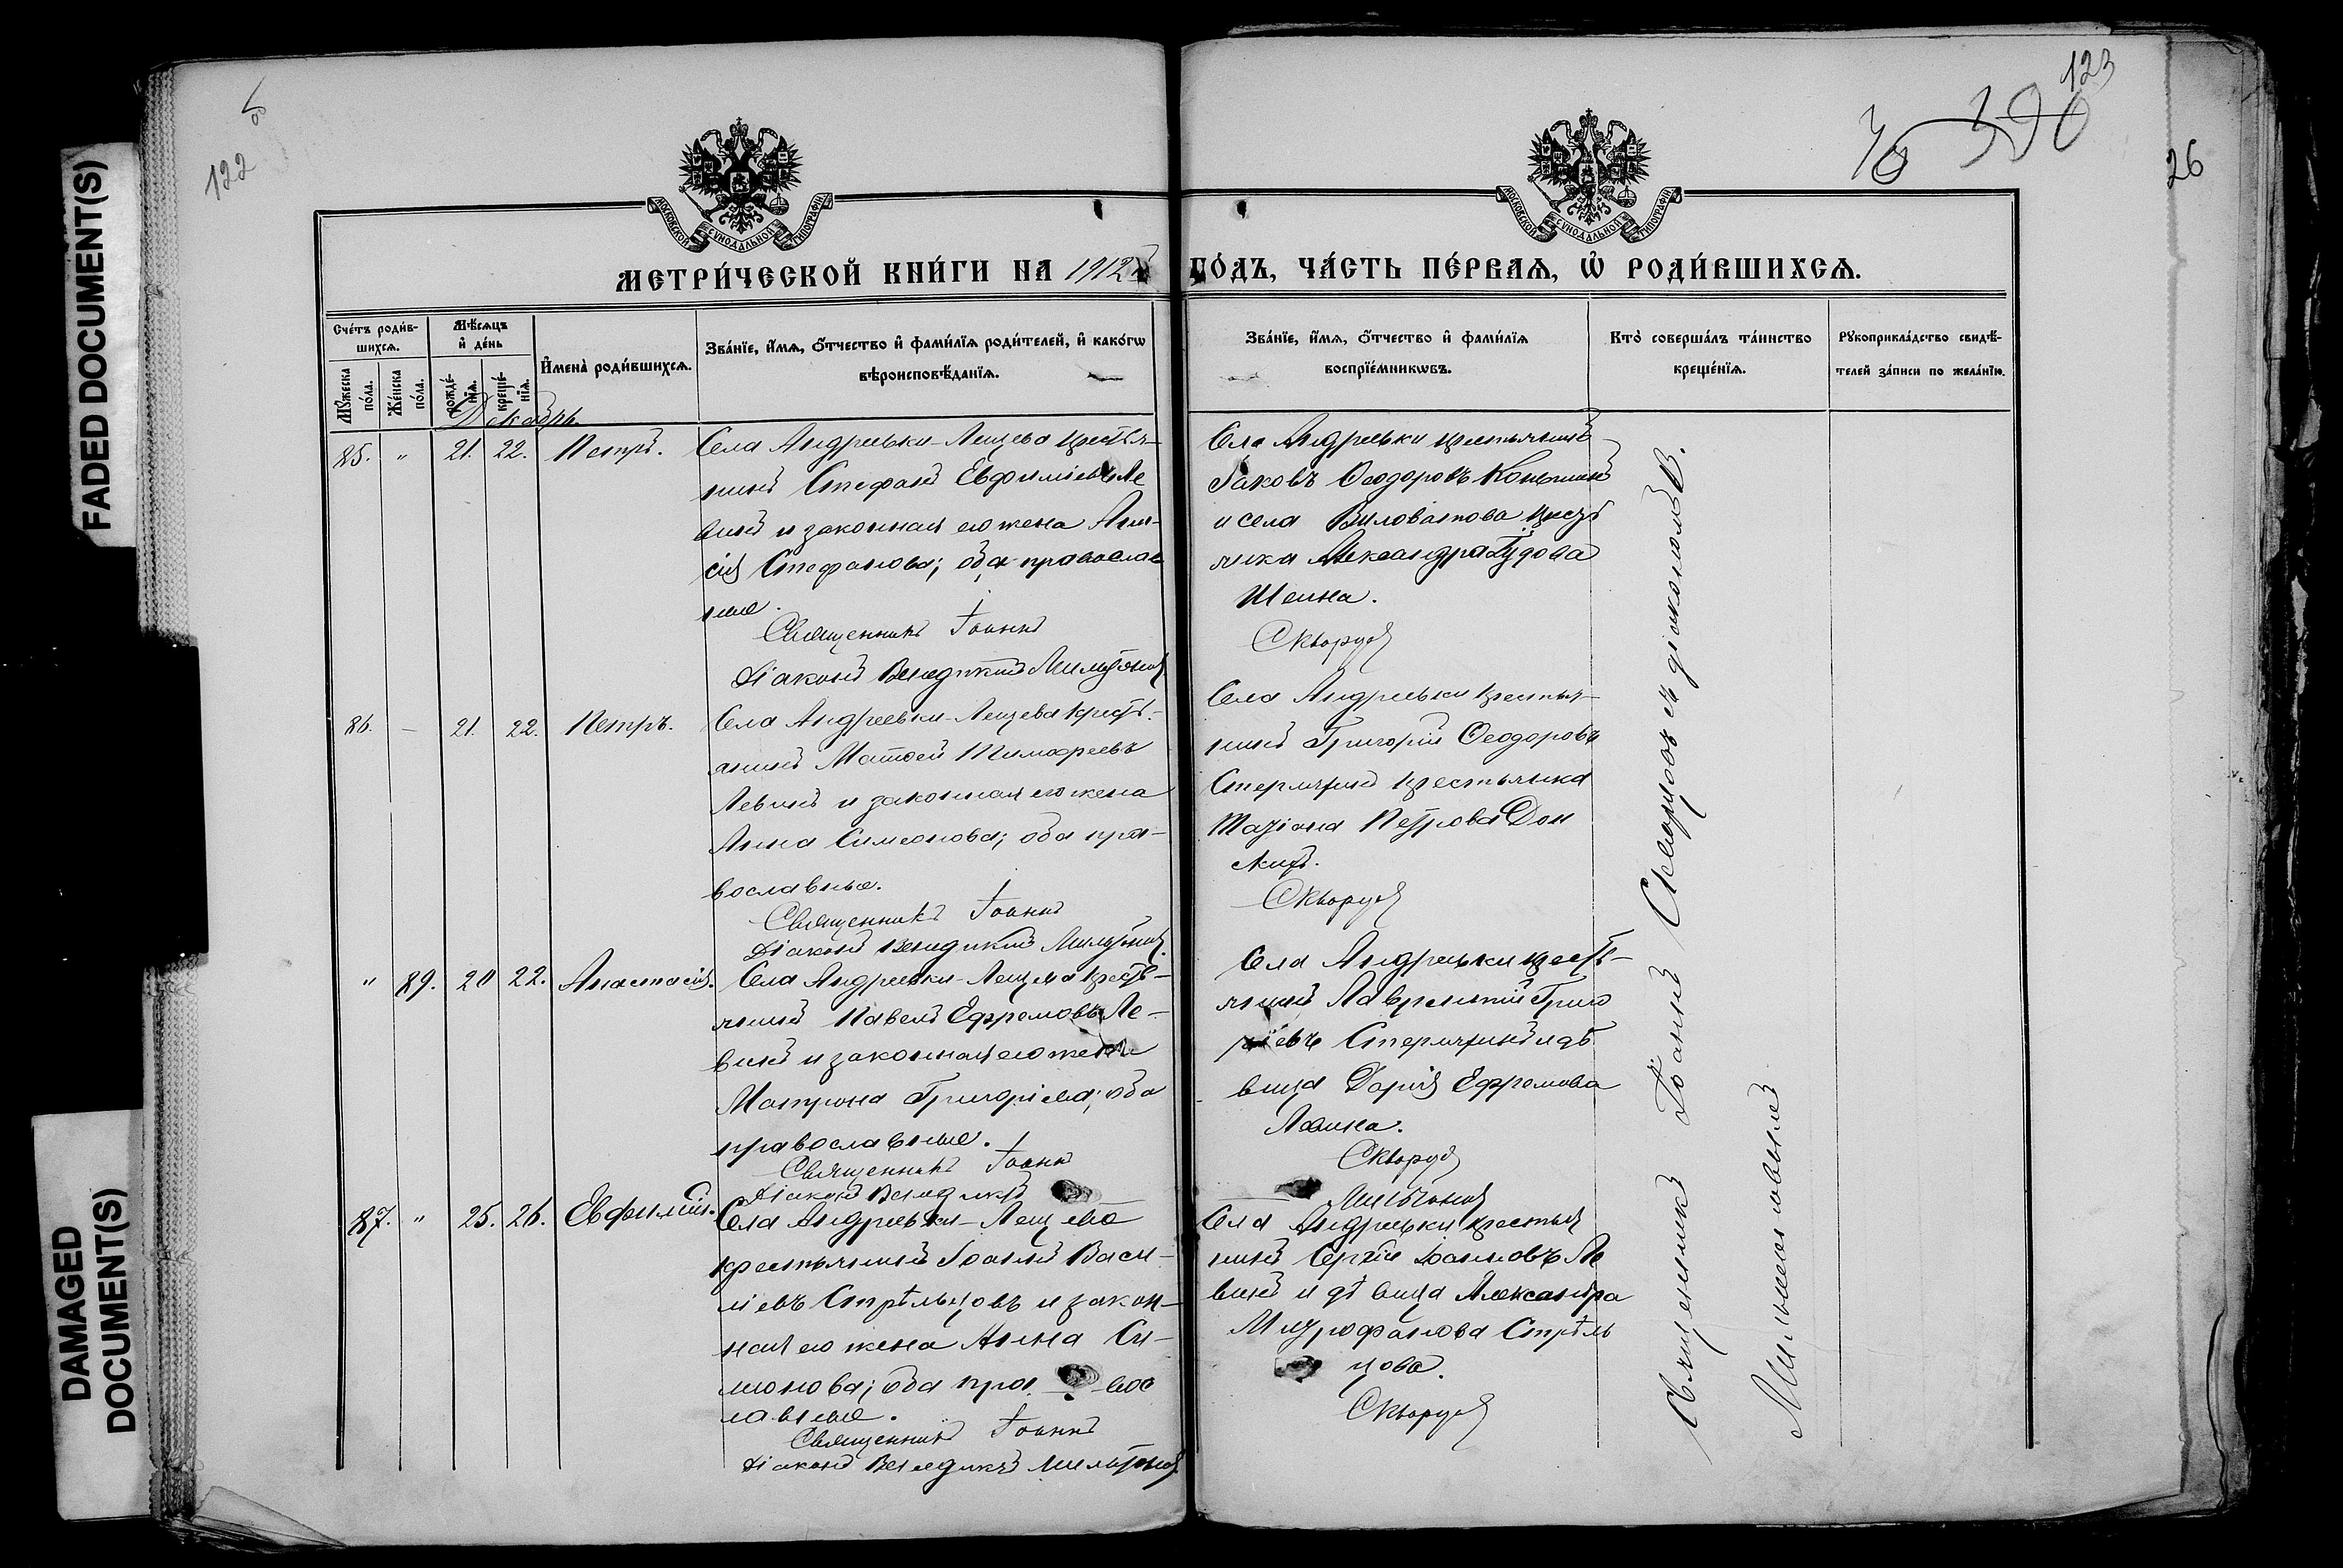 122
123
26
FADED DOCUMENT(S)
DAMAGED DOCUMENT(S)
МОСКОВСКОЙ СѴНОДАЛЬНОЙ ТИПОГРАФІИ
МОСКОВСКОЙ СѴНОДАЛЬНОЙ ТИПОГРАФІИ
МЕТРИ́ЧЕСКОЙ КНИ́ГИ НА 1912 ГО́ДЪ, ЧА́СТЬ ПЕ́РВАѦ, Ѡ҆ РОДИ́ВШИХСѦ.
Сче́тъ роди́в-
шихсѧ.
Мꙋ́жеска по́ла.
Же́нска по́ла.
Мѣ́сѧцъ и҆ де́нь
рожде́-нїѧ.
креще́-нїѧ.
И҆мена̀ роди́вшихсѧ.
Зва́нїе, и҆́мѧ, ѻ҆́тчество и҆ фами́лїѧ роди́телей, и҆ како́гѡ
вѣроисповѣ́данїѧ.
Зва́нїе, и҆́мѧ, ѻ҆́тчество и҆ фами́лїѧ
воспрїе́мникѡвъ.
Кто̀ соверша́лъ та́инство
креще́нїѧ.
Рꙋкоприкла́дство свидѣ́-
телей за́писи по жела́нїю.
Декабрь.
85. " 21. 22. Петръ.
Села Андреевки-Лещева крестья-
нинъ Стефанъ Евфиміевъ Ле
винъ и законная его жена
Стефанова; оба православ
ные.
Священникъ Іоаннъ
Діаконъ Венедиктъ
Села Андреевки крестьянинъ
Іаковъ Ѳеодоровъ
и села Виловатова крест
янка Александра
Шеина.
Скворцовъ
86. – 21. 22. Петръ.
Села Андреевки-Лещева крестъ-
янинъ Матѳей Тимофеевъ
Левинъ и законная его жена
Анна Симеонова; оба пра-
вославные.
Священникъ Іоаннъ
Діаконъ Венедиктъ
Села Андреевки крестья-
нинъ Григорій Ѳеодоровъ
крестьянка
Петрова Дон
Скворцовъ
" 89. 20 22. Анастасія.
Села Андреевки-Лещева крестъ-
янинъ Павелъ Ефремовъ Ле-
винъ и законная его жена
Матрона Григоріева; оба
православные.
Священникъ Іоаннъ
Діаконъ Венедиктъ
Села Андреевки крестъ-
янинъ Лаврентій Григо
ріевъ и дѣ
вица Дарія Ефремова
Левина.
Скворцовъ
87. " 25. 26. Евфимій.
Села Андреевки-Лещева
крестьянинъ Іоаннъ Васи-
ліевъ Стрѣльцовъ и закон-
ная его жена Анна Си-
меонова; оба пра - вос
лавные.
Священникъ Іоаннъ
Діаконъ Венедиктъ
Села Андреевки крестья
нинъ Сергій Іоанновъ Ле
винъ и дѣвица Александра
Митрофанова Стрѣль
цова.
Скворцовъ
Священникъ Іоаннъ Скворцовъ съ діакономъ В.